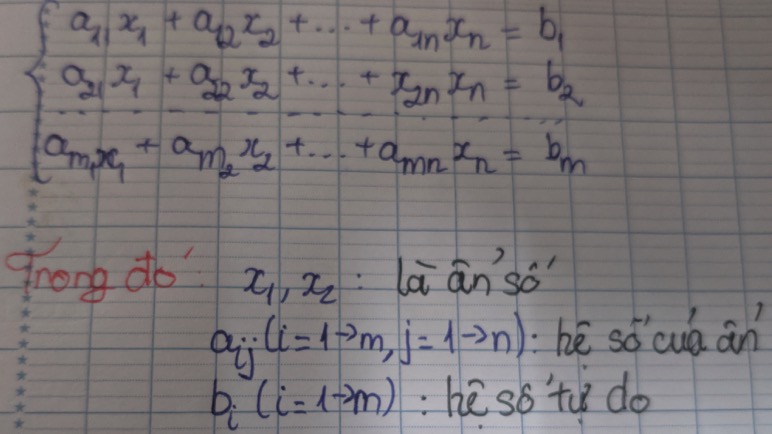 a₁₁x₁ + a₁₂x₂ + ... + a₁ₙxₙ = b₁
a₂₁x₁ + a₂₂x₂ + ... + x₂ₙxₙ = b₂
aₘ₁x₁ + aₘ₂x₂ + ... + aₘₙxₙ = bₘ
Trong đó: x₁, x₂ : là ẩn số
aᵢⱼ (i=1→m, j=1→n): hệ số của ẩn
bᵢ (i=1→m) : hệ số tự do